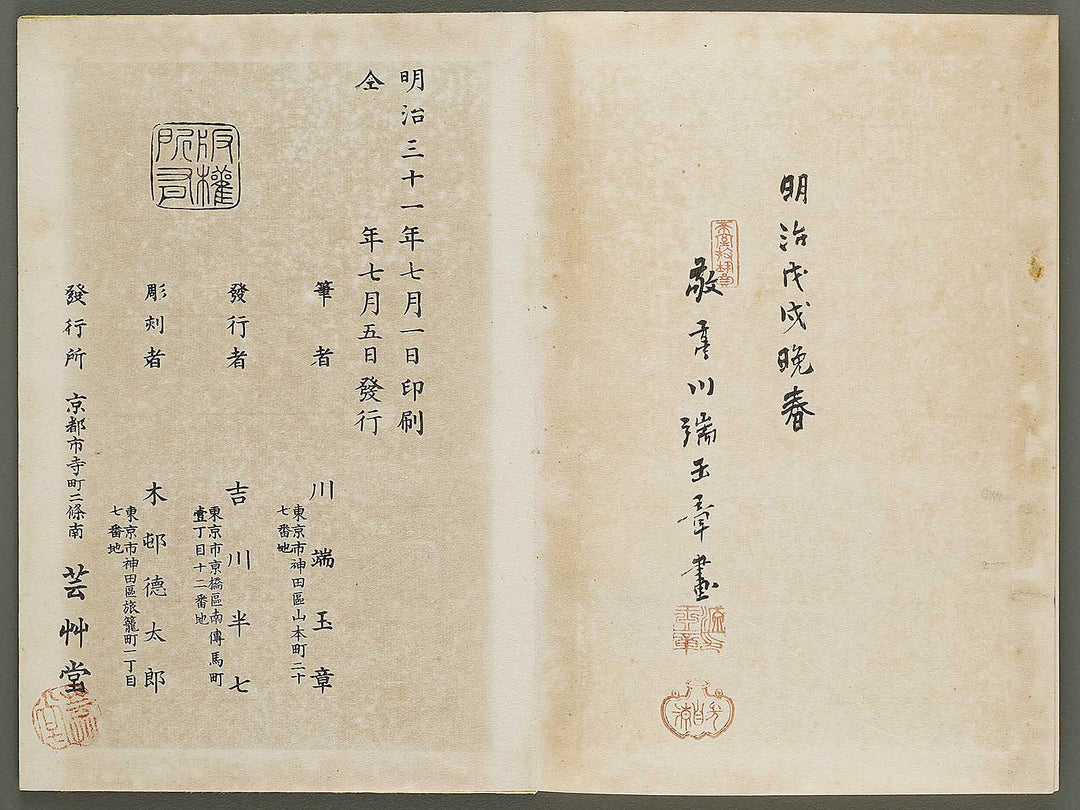 明治戊戌晩春
敬亭川端玉章畫
明治三十一年七月一日印刷
仝年七月五日發行
版權所有
筆者 川端玉章
東京市神田區山本町二十
七番地
發行者 吉川半七
東京市京橋區南傳馬町
壹丁目十二番地
彫刻者 木邨德太郎
東京市神田區旅籠町一丁目
七番地
發行所 京都市寺町二條南 芸艸堂